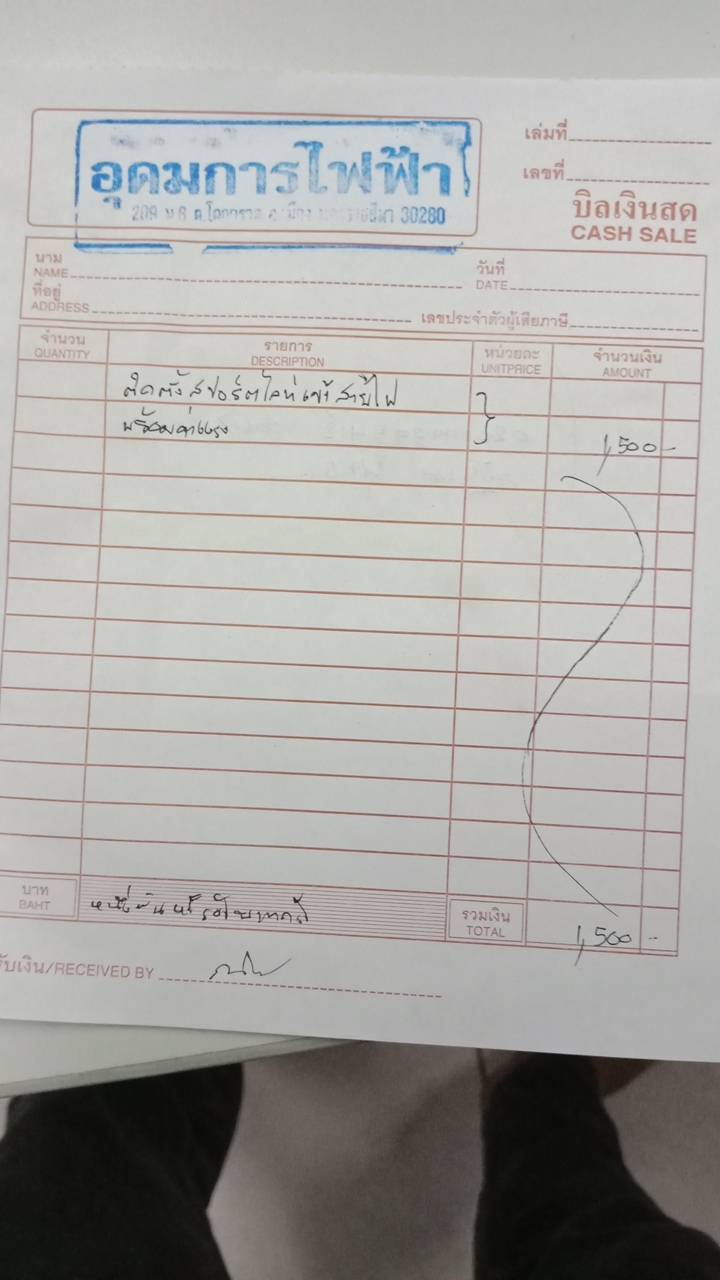 เล่มที่
อุดมการไฟฟ้า
เลขที่
209 ม.6 ต.โคกกรวด อ.เมือง นครราชสีมา 30280
บิลเงินสด
CASH SALE
นาม
NAME
วันที่
DATE
ที่อยู่
ADDRESS
เลขประจำตัวผู้เสียภาษี
จำนวน รายการ หน่วยละ จำนวนเงิน
QUANTITY DESCRIPTION UNITPRICE AMOUNT
ติดตั้งสปอร์ตไลท์ สายไฟ
พร้อมค่าแรง 1,500 -
บาท
BAHT
หนึ่งพันห้าร้อยบาทถ้วน
รวมเงิน
TOTAL
1,500 -
รับเงิน/RECEIVED BY